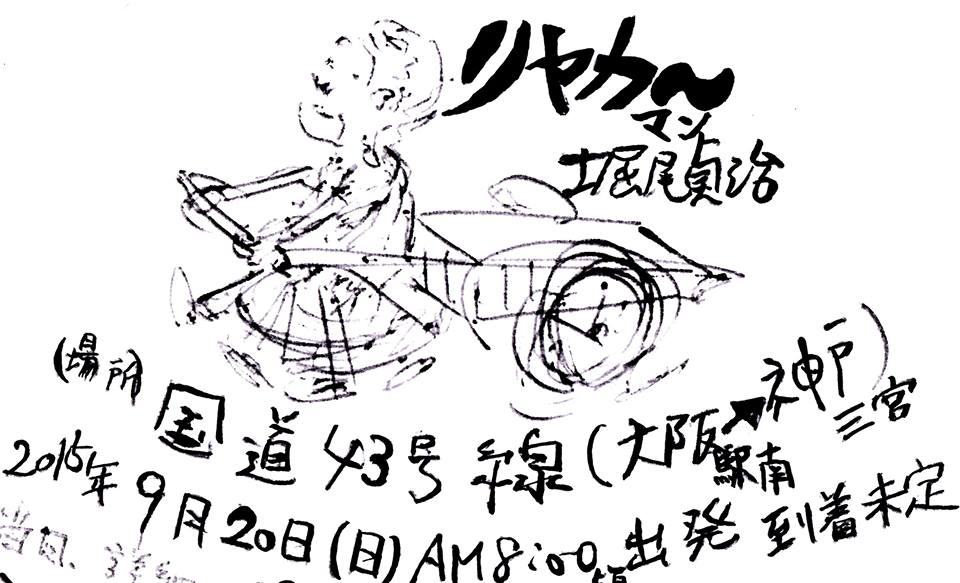 リヤカ〜
マン
堀尾貞治
(場所)
国道43号線(大阪→神戸)
駅南 三宮
2015年9月20日(日)AM8:00頃出発 到着未定
当日、詳細